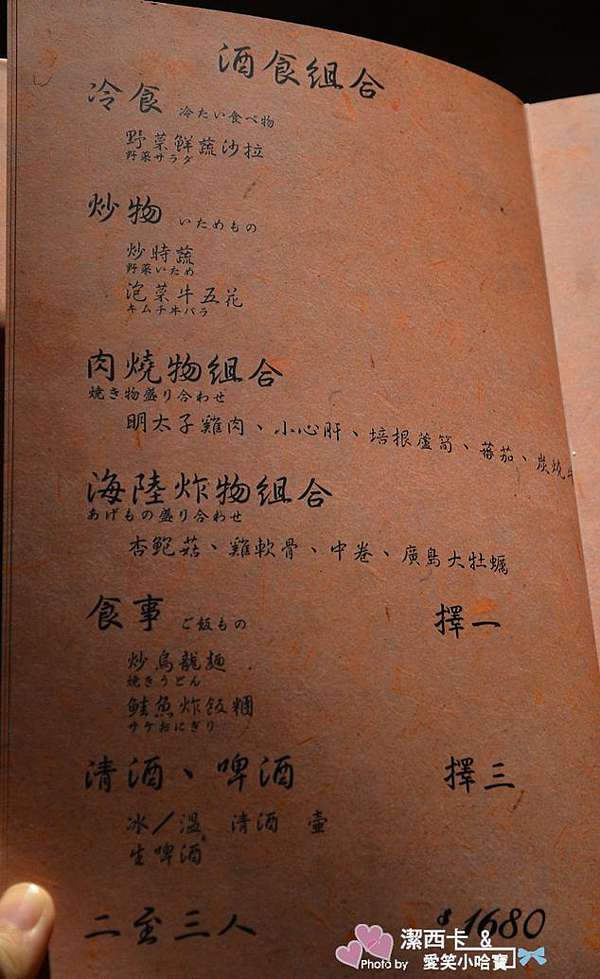 酒食組合
冷食 冷たい食べ物
野菜鮮蔬沙拉
野菜サラダ
炒物 いためもの
炒時蔬
野菜いため
泡菜牛五花
キムチ牛バラ
肉燒物組合
焼き物盛り合わせ
明太子雞肉、小心肝、培根蘆筍、蕃茄、炭燒
海陸炸物組合
あげもの盛り合わせ
杏鮑菇、雞軟骨、中卷、廣島大牡蠣
食事 ご飯もの 擇一
炒烏龍麵
焼きうどん
鮭魚炸飯糰
サケおにぎり
清酒、啤酒 擇三
冰/溫 清酒 壺
生啤酒
二至三人 $1680
潔西卡 &
Photo by 愛笑小哈寶